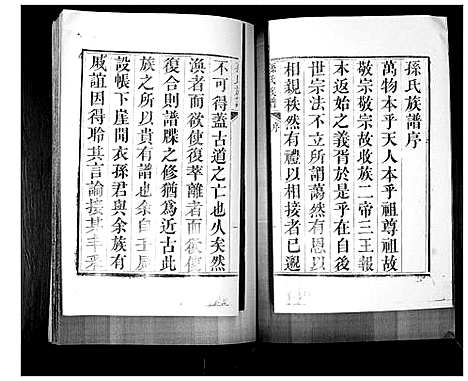 孫氏族譜序
萬物本乎天人本乎祖尊祖故
敬宗敬宗故收族二帝三王報
本返始之義胥於是乎在自後
世宗法不立所謂藹然有恩以
相親秩然有禮以相接者已邈
孫氏族譜 序
不可得蓋古道之亡也久矣然
渙者而欲使復萃離者而欲使
復合則譜牒之修猶為近古此
族之所以貴有譜也余自壬
設帳下崖間衣孫君與余族有
戚誼因得聆其言論接其丰采